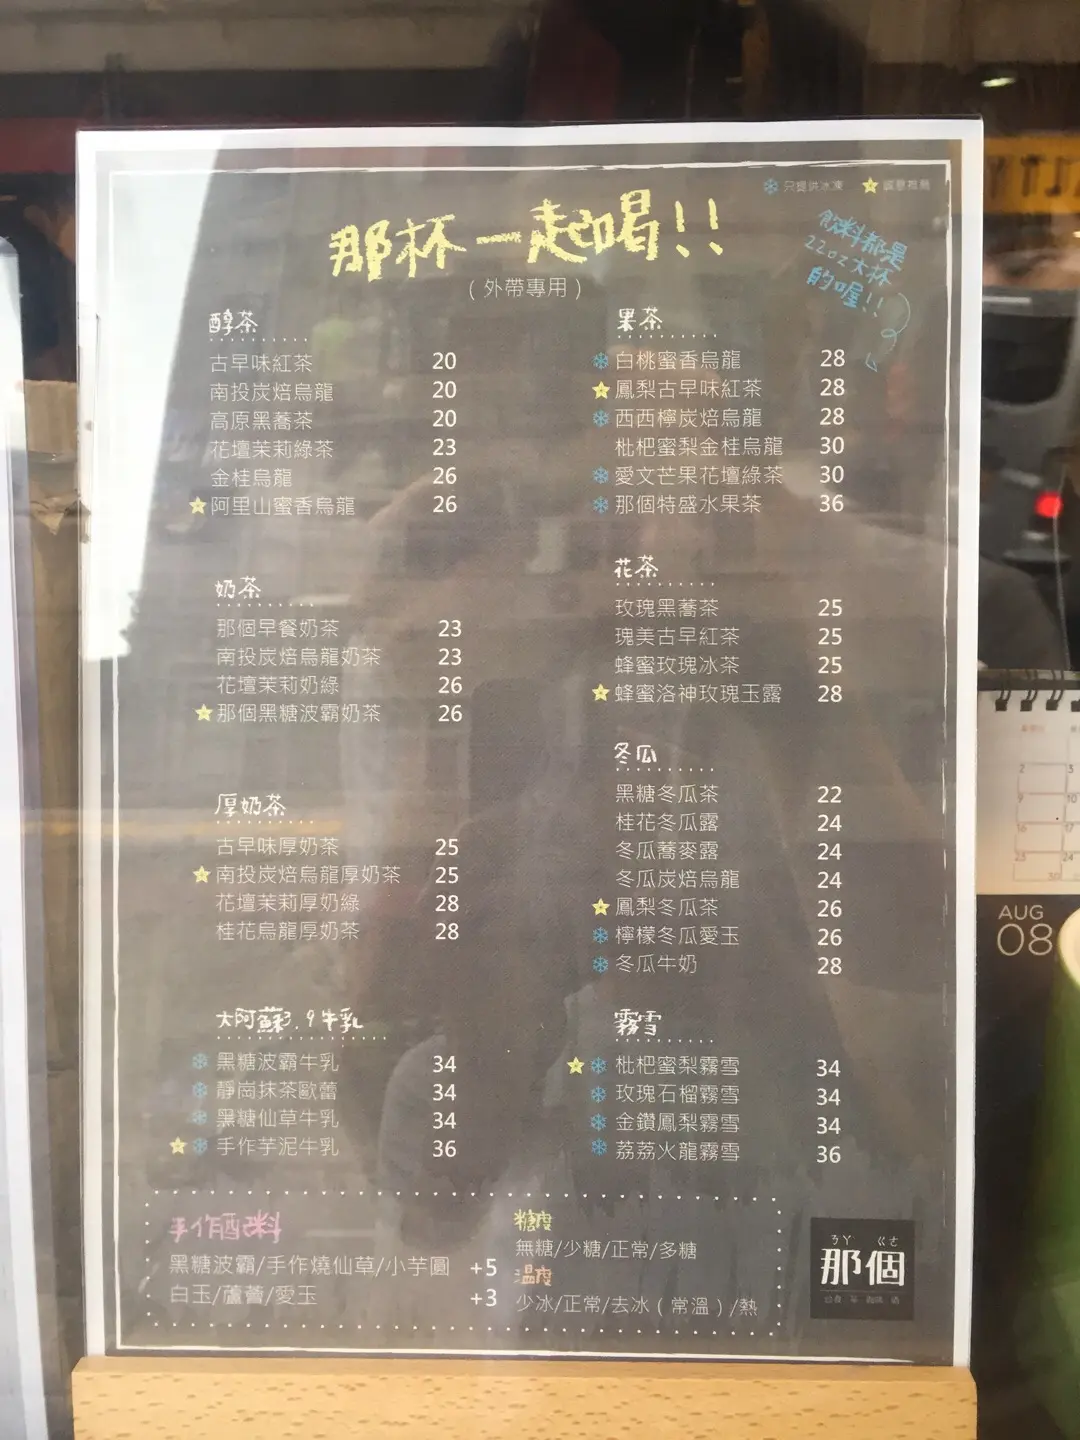 只提供冰凍
誠意推薦
那杯一起喝!!
(外帶專用)
飲料都是
22oz大杯
的喔!!
醇茶
古早味紅茶 20
南投炭焙烏龍 20
高原黑蕎茶 20
花壇茉莉綠茶 23
金桂烏龍 26
阿里山蜜香烏龍 26
奶茶
那個早餐奶茶 23
南投炭焙烏龍奶茶 23
花壇茉莉奶綠 26
那個黑糖波霸奶茶 26
厚奶茶
古早味厚奶茶 25
南投炭焙烏龍厚奶茶 25
花壇茉莉厚奶綠 28
桂花烏龍厚奶茶 28
大阿蘇3.9牛乳
黑糖波霸牛乳 34
靜崗抹茶歐蕾 34
黑糖仙草牛乳 34
手作芋泥牛乳 36
果茶
白桃蜜香烏龍 28
鳳梨古早味紅茶 28
西西檸炭焙烏龍 28
枇杷蜜梨金桂烏龍 30
愛文芒果花壇綠茶 30
那個特盛水果茶 36
花茶
玫瑰黑蕎茶 25
瑰美古早紅茶 25
蜂蜜玫瑰冰茶 25
蜂蜜洛神玫瑰玉露 28
冬瓜
黑糖冬瓜茶 22
桂花冬瓜露 24
冬瓜蕎麥露 24
冬瓜炭焙烏龍 24
鳳梨冬瓜茶 26
檸檬冬瓜愛玉 26
冬瓜牛奶 28
霧雪
枇杷蜜梨霧雪 34
玫瑰石榴霧雪 34
金鑽鳳梨霧雪 34
荔荔火龍霧雪 36
手作配料
黑糖波霸/手作燒仙草/小芋圓 +5
白玉/蘆薈/愛玉 +3
糖度
無糖/少糖/正常/多糖
溫度
少冰/正常/去冰(常溫)/熱
ㄋㄚ ㄍㄜ
那個
AUG
08